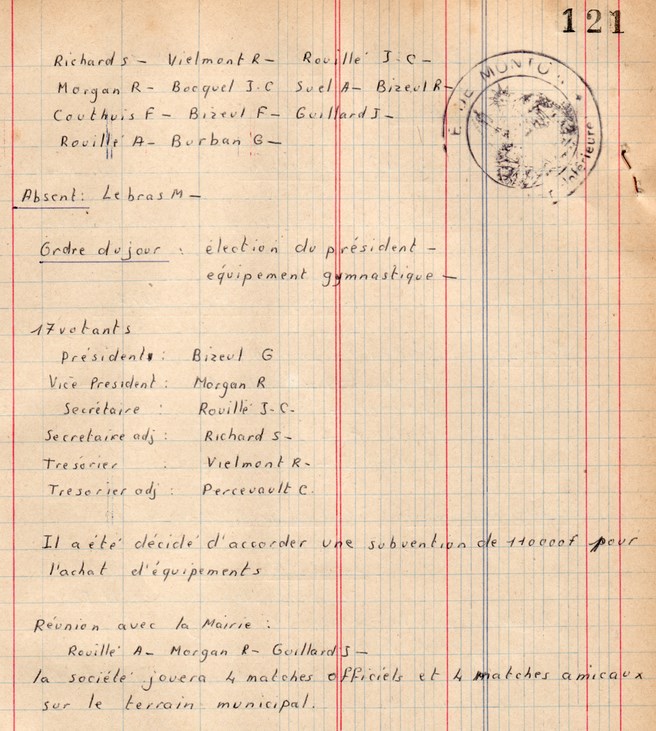 121
Richard S - Vielmont R - Rouillé J.C -
Morgan R - Bocquel J.C Suel A - Bizeul R -
Couthuis F - Bizeul F - Guillard J -
Rouillé A - Burban G -
DE MONTO
Intérieure
Absent: Lebras M -
Ordre du jour : élection du président -
equipement gymnastique -
17 votants
Président : Bizeul G
Vice President : Morgan R
Secrétaire : Rouillé J-C-
Secretaire adj : Richard S -
Tresorier : Vielmont R -
Tresorier adj : Percevault C.
Il a été décidé d'accorder une subvention de 110000f pour
l'achat d'équipements
Réunion avec la Mairie :
Rouillé A - Morgan R - Guillard J -
la société jouera 4 matches officiels et 4 matches amicaux
sur le terrain municipal.